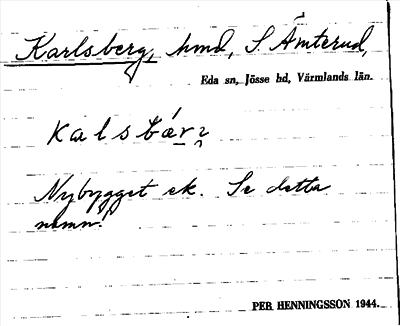 Karlsberg, hmd, S. Ämterud,
Eda sn, Jösse hd, Värmlands län.
Kalsbær̯
Nybygget ek. Se detta
namn!
PER HENNINGSSON 1944.